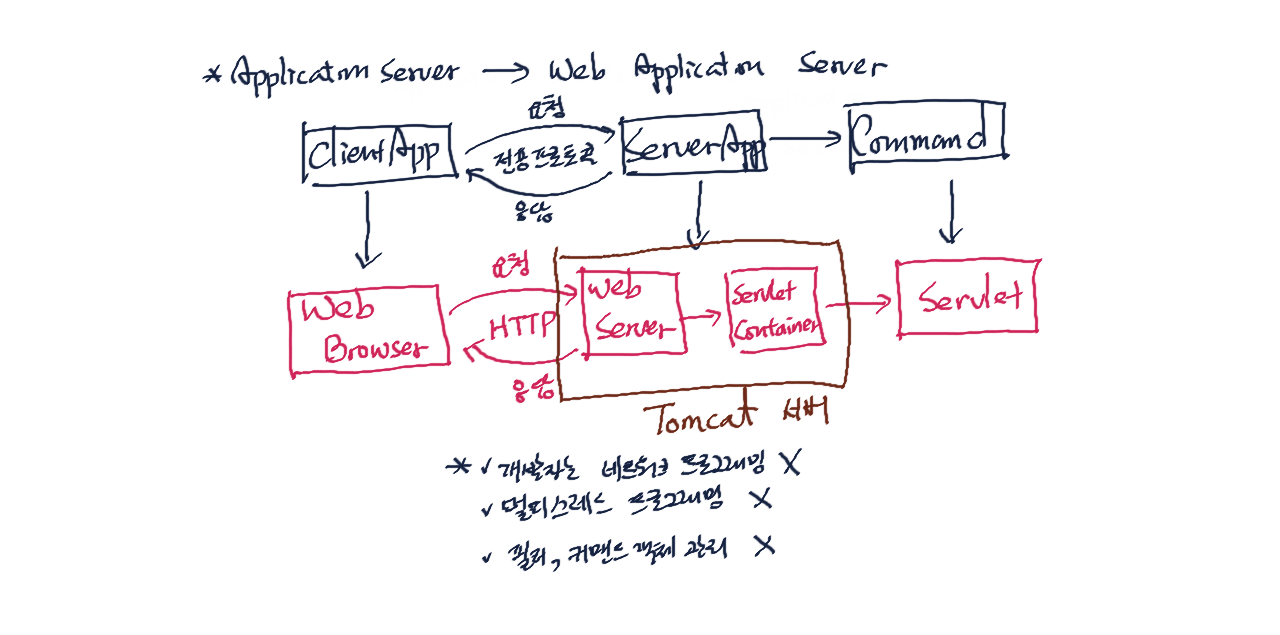 * Application Server → Web Application Server
요청
ClientApp
전용프로토콜
ServerApp
Command
응답
요청
Web
Browser
HTTP
Web
Server
Servlet
Container
Servlet
응답
Tomcat 서버
* ✓ 개발자는 네트워크 프로그래밍 X
✓ 멀티스레드 프로그래밍 X
✓ 필터, 커맨드 객체 관리 X